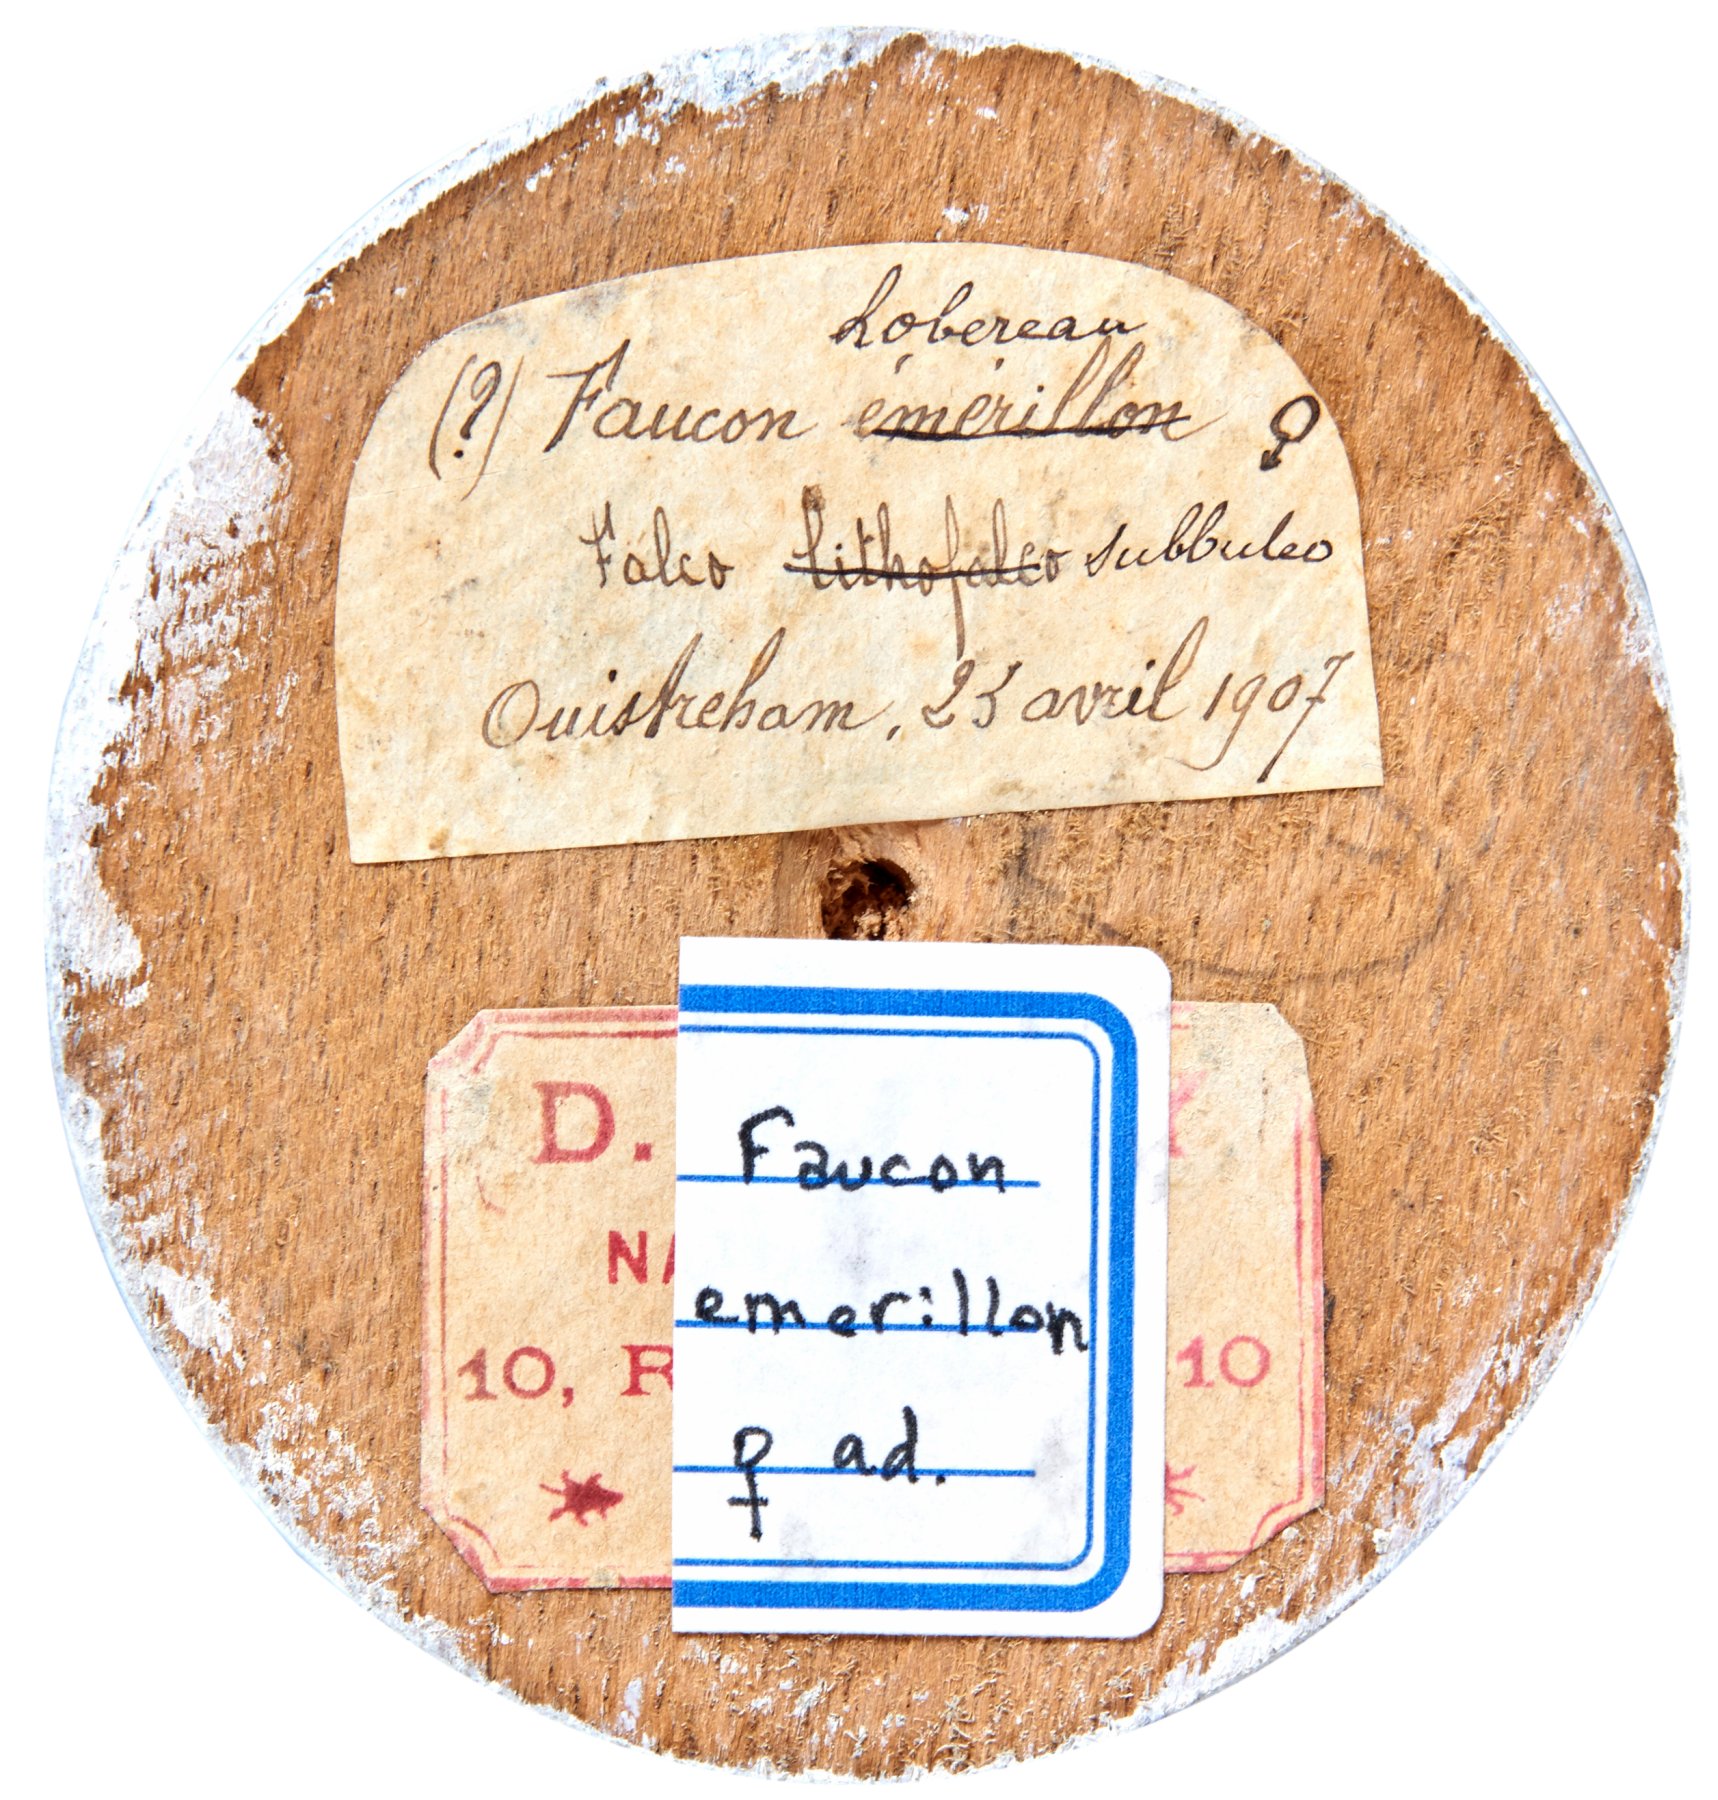 hobereau
(?) Faucon émérillon ♂
Falco lithofalco subbuteo
Ouistreham, 25 avril 1907
D.
Faucon
emerillon
10, R
10
♀ ad.